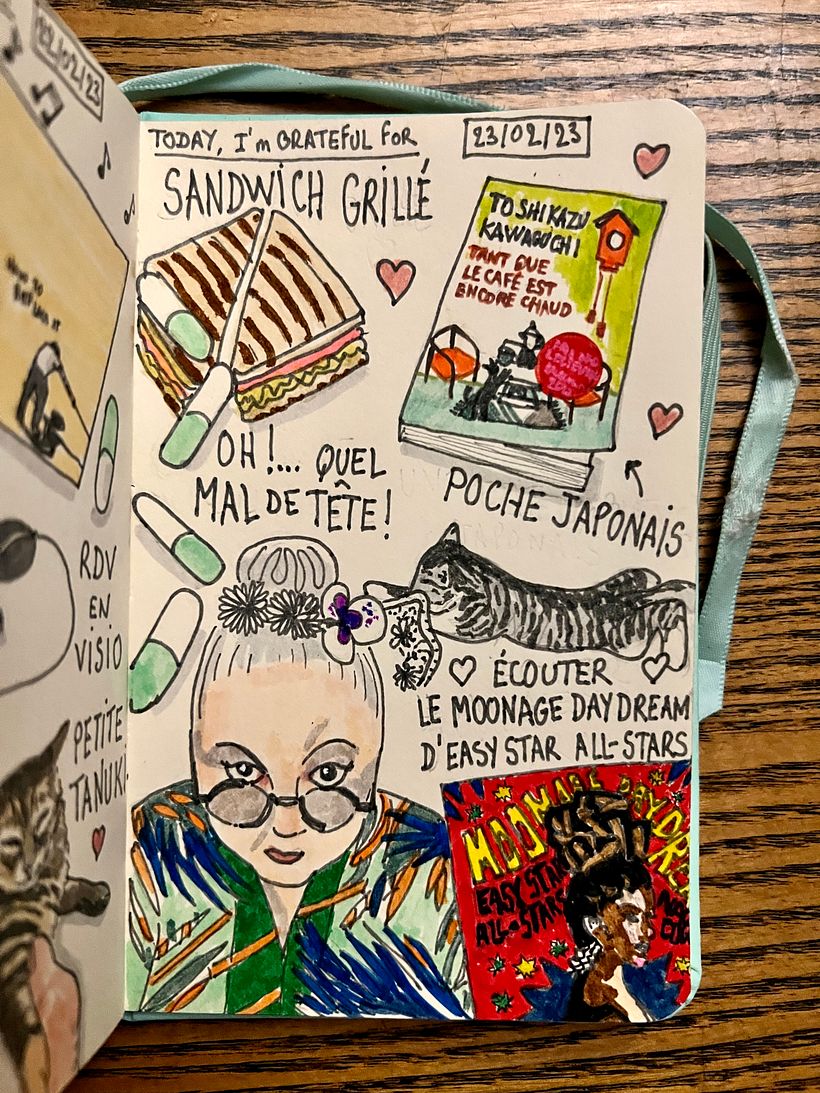 22/02/23
RDV
EN
VISIO
PETITE
TANUKI
TODAY, I'm GRATEFUL FOR
23/02/23
SANDWiCH GRiLLÉ
TOSHIKAZU
KAWAGUCHI
TANT QUE
LE CAFÉ EST
ENCORE CHAUD
OH!... QUEL
MAL DE TÊTE!
POCHE JAPONAIS
ÉCOUTER
LE MOONAGE DAYDREAM
D'EASY STAR ALL-STARS
MOONAGE DAYDRE
EASY STAR
ALL-STARS